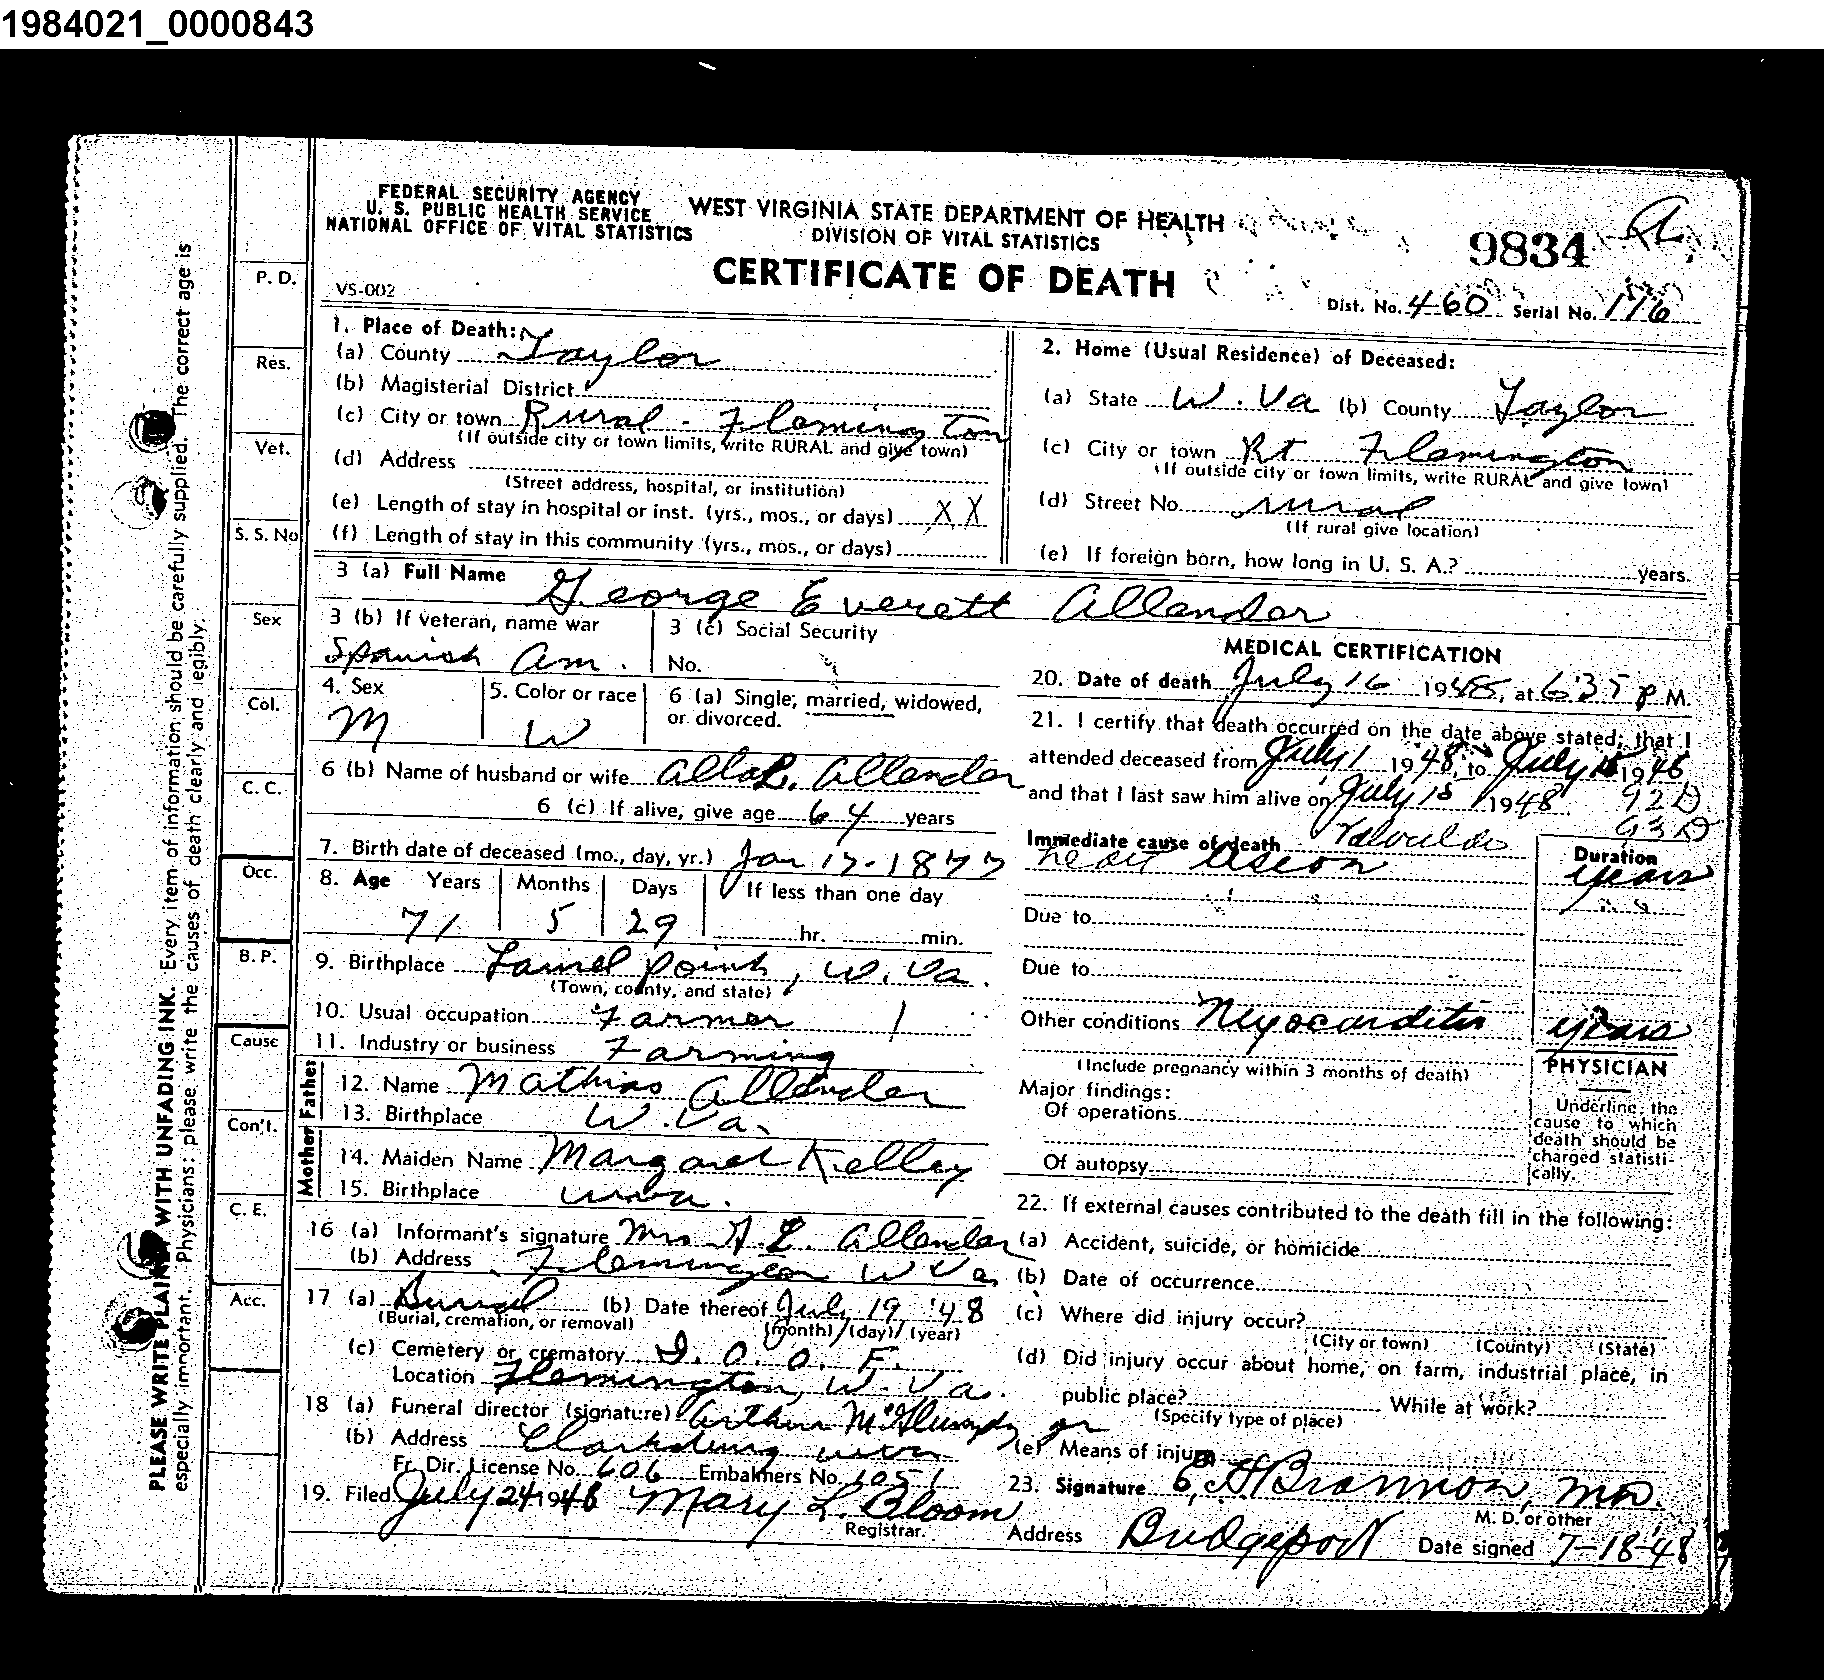 1984021_0000843
FEDERAL SECURITY AGENCY
U. S. PUBLIC HEALTH SERVICE
NATIONAL OFFICE OF VITAL STATISTICS
WEST VIRGINIA STATE DEPARTMENT OF HEALTH
DIVISION OF VITAL STATISTICS
CERTIFICATE OF DEATH
9834
VS-002
Dist. No. 460 Serial No. 116
PLEASE WRITE PLAINLY WITH UNFADING INK. Every item of information should be carefully supplied. The correct age is
especially important. Physicians: please write the causes of death clearly and legibly.
P. D.
Res.
Vet.
S. S. No
Sex
Col.
C. C.
Occ.
B. P.
Cause
Con't.
C. E.
Acc.
1. Place of Death:
(a) County Taylor
(b) Magisterial District
(c) City or town Rural - Flemington
(If outside city or town limits, write RURAL and give town)
(d) Address
(Street address, hospital, or institution)
(e) Length of stay in hospital or inst. (yrs., mos., or days) XX
(f) Length of stay in this community (yrs., mos., or days)
2. Home (Usual Residence) of Deceased:
(a) State W. Va (b) County Taylor
(c) City or town Rt Flemington
(If outside city or town limits, write RURAL and give town)
(d) Street No. rural
(If rural give location)
(e) If foreign born, how long in U. S. A.? years.
3 (a) Full Name George Everett Allender
3 (b) If veteran, name war
Spanish Am.
3 (c) Social Security
No.
4. Sex
M
5. Color or race
W
6 (a) Single, married, widowed,
or divorced.
6 (b) Name of husband or wife Alla L. Allender
6 (c) If alive, give age 64 years
7. Birth date of deceased (mo., day, yr.) Jan 17-1877
8. Age Years Months Days If less than one day
71 5 29 hr. min.
9. Birthplace Laurel Point, W. Va.
(Town, county, and state)
10. Usual occupation Farmer 1
11. Industry or business Farming
Father
12. Name Mathias Allender
13. Birthplace W. Va.
Mother
14. Maiden Name Margaret Kelley
15. Birthplace W Va.
16 (a) Informant's signature Mrs A. L. Allender
(b) Address Flemington W Va
17 (a) Burial (b) Date thereof July 19, '48
(Burial, cremation, or removal) (month) (day) (year)
(c) Cemetery or crematory I. O. O. F.
Location Flemington, W. Va.
18 (a) Funeral director (signature) Arthur
(b) Address Clarksburg W Va
Fr. Dir. License No. 606 Embalmers No. 1051
19. Filed July 24 1948 Mary L. Bloom
Registrar.
MEDICAL CERTIFICATION
20. Date of death July 16 1948, at 6:35 P M.
21. I certify that death occurred on the date above stated; that I
attended deceased from July 1 1948, to July 15 1948
and that I last saw him alive on July 15 1948
92D
93D
Immediate cause of death Valvular
heart lesion
Duration
years
Due to
Due to
Other conditions Myocarditis years
(Include pregnancy within 3 months of death)
Major findings:
Of operations
Of autopsy
PHYSICIAN
Underline the
cause to which
death should be
charged statisti-
cally.
22. If external causes contributed to the death fill in the following:
(a) Accident, suicide, or homicide
(b) Date of occurrence
(c) Where did injury occur?
(City or town) (County) (State)
(d) Did injury occur about home, on farm, industrial place, in
public place? While at work?
(Specify type of place)
(e) Means of injury
23. Signature E. H Brannon, MD.
M. D. or other
Address Bridgeport Date signed 7-18-48